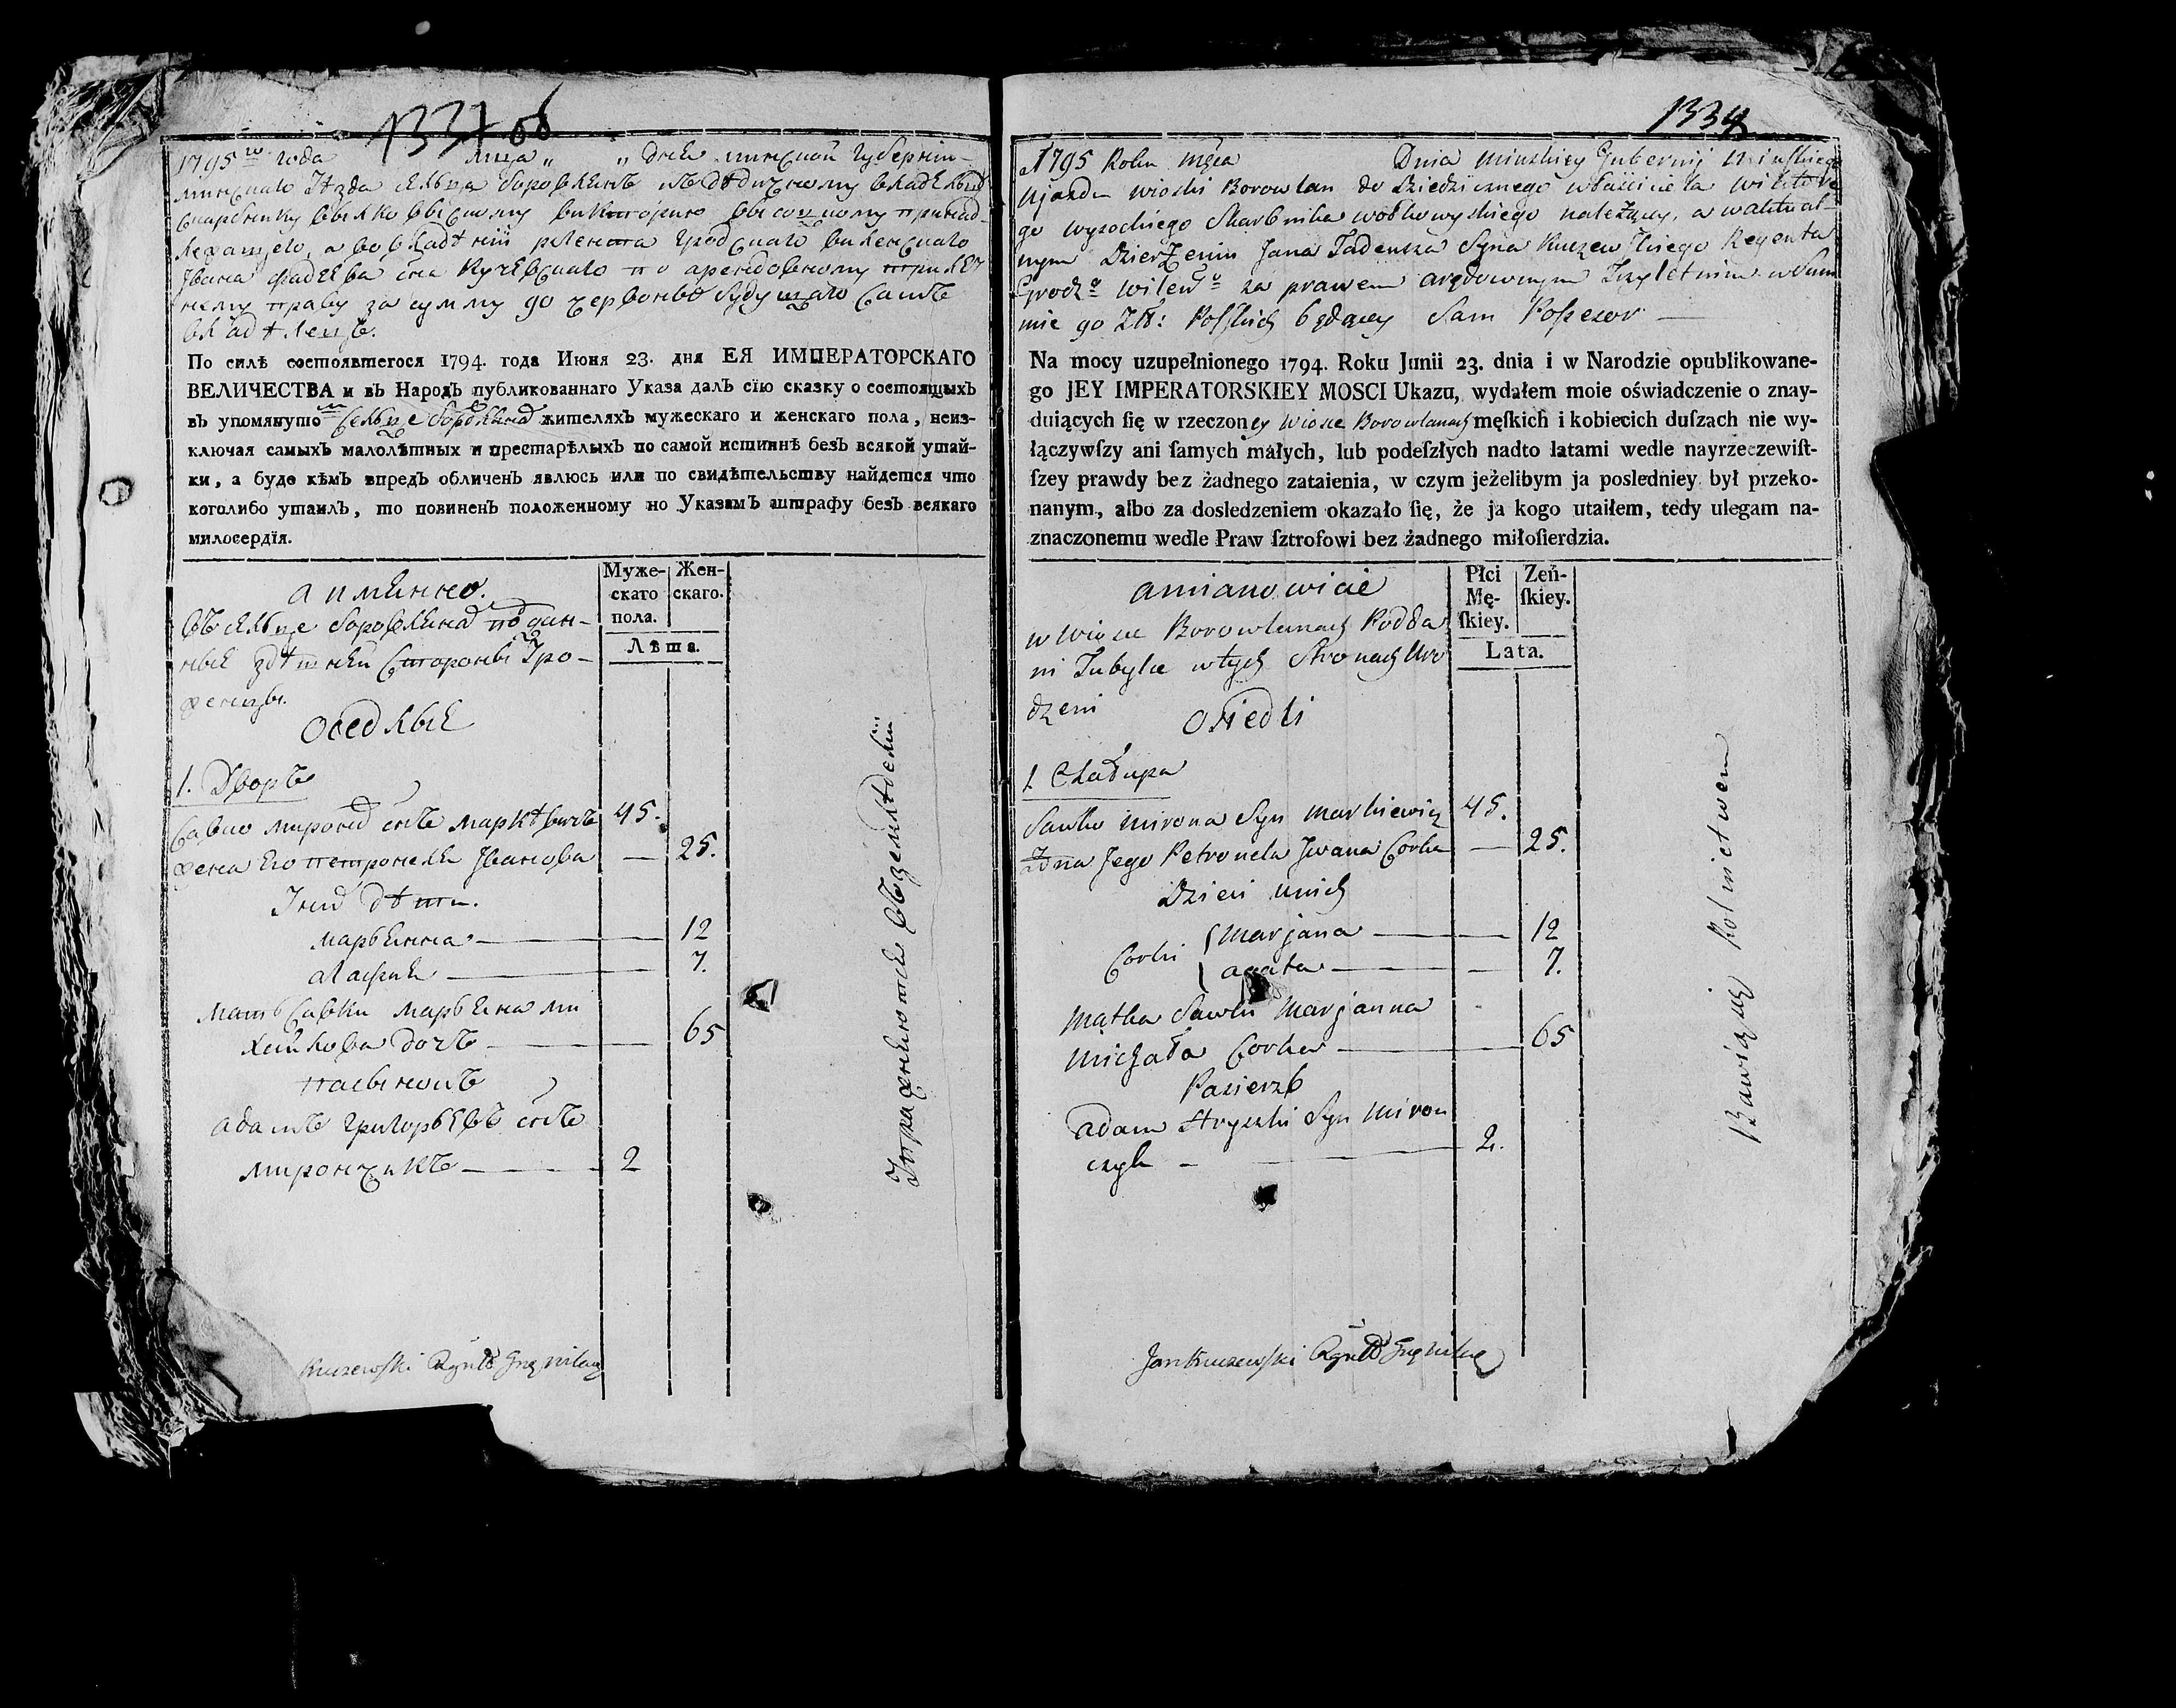 1337 об
1795го года мца „ „ дня минской Губернiи
минскаго уѣзда сельца Боровлянъ наслѣдичному владельцу
скарбнику Волковыскому Викторию Высоцкому принад-
лежащего, а во владѣнiи регента гродскаго виленскаго
Ивана Фадеева сна Кучевскаго по арендовному трилет
нему праву за сумму до червонво будущаго Самъ
владѣлецъ.
По силѣ состоявшегося 1794. года Июня 23. дня ЕЯ ИМПЕРАТОРСКАГО
ВЕЛИЧЕСТВА и въ Народъ публикованнаго Указа далъ сїю сказку о состоящыхъ
въ упомянутом сельце Боровлянах жителяхъ мужескаго и женскаго пола, неиз-
ключая самыхъ малолѣтныхъ и престарѣлыхъ по самой истиннѣ безъ всякой утай-
ки, а буде кѣмъ впредъ обличенъ явлюсь или по свидѣтельству найдется что
коголибо утаилъ, то повиненъ положенному по Указамъ штрафу безъ всякаго
милосердїя.
а имянно.
Муже-
скаго
пола.
Жен-
скаго.
Лѣта.
Въ сельце Боровлянах подан-
ные здѣшней Стороны Уро-
женцы.
Оседлые
1. Дворъ
Савко миронов снъ маркѣвичъ 45.
жена его петронеля Иванова — 25.
У них дѣти.
марьянна — 12
агафия — 7.
мать Савки марьяна ми
хайлова дочъ — 65
пасынокъ
адамъ григорьевъ снъ
мирончикъ — 2
Упражняются въ земледелiи
Kuczewski Rgnt Grgz Wileń
1334
1795 Roku Mca Dnia Minskiey Gubernij Minskiego
Ujazdu wioski Borowlan do Dziedzicznego właściciela Wiktore
go Wysockiego Skarbnika Wołkowyskiego należący, a w aktual-
nym Dzierżeniu Jana Tadeusza Syna Kuczewskiego Regenta
Grodzo Wileno za prawem arędownym Trzyletnim w Sum
mie 90 Zło: Polskich będący Sam Possesor —
Na mocy uzupełnionego 1794. Roku Junii 23. dnia i w Narodzie opublikowane-
go JEY IMPERATORSKIEY MOSCI Ukazu, wydałem moie oświadczenie o znay-
duiących ſię w rzeczoney wiosce Borowlanach męſkich i kobiecich duſzach nie wy-
łączywſzy ani ſamych małych, lub podeſzłych nadto latami wedle nayrzeczewiſt-
ſzey prawdy bez żadnego zataienia, w czym jeżelibym ja posledniey był przeko-
nanym, albo za dosledzeniem okazało ſię, że ja kogo utaiłem, tedy ulegam na-
znaczonemu wedle Praw ſztrofowi bez żadnego miłoſierdzia.
amianowicie
Płci
Mę-
ſkiey.
Zeń-
ſkiey.
Lata.
w Wiosce Borowlanach Podda
ni Tubylce w tych Stronach Uro
dzeni
Osiedli
1. Chałupa
Sawko Mirona Syn Markiewicz 45.
Żona Jego Petronela Jwana Corka — 25.
Dzieci Unich
Corki { Marjana — 12
agata — 7.
Matka Sawki Marjanna
Michała Corka — 65
Pasierzb
Adam Hryszki Syn Miron
czyk — 2.
Bawią się Rolnictwem
Jan Kuczewski Rgnt Grgz Wileń